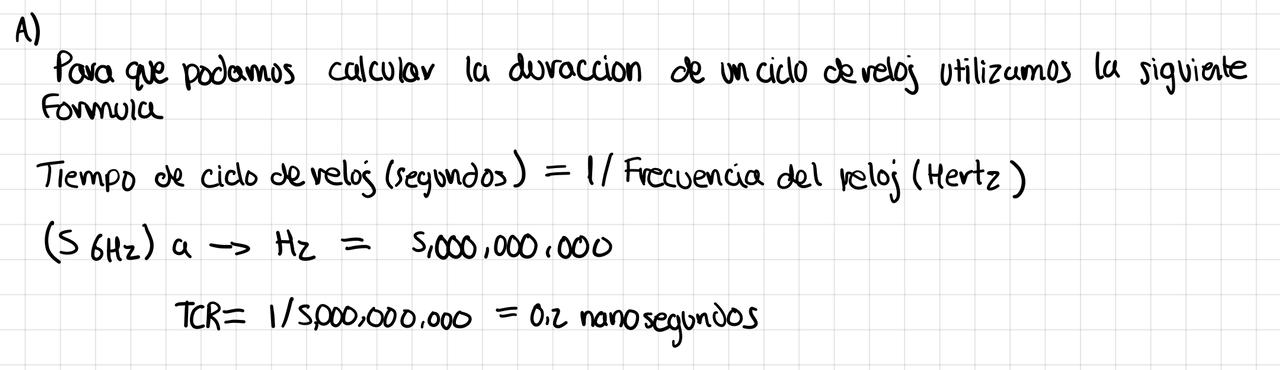 A)
Para que podamos calcular la duraccion de un ciclo de reloj utilizamos la siguiente
Formula
Tiempo de ciclo de reloj (segundos) = 1/ Frecuencia del reloj (Hertz)
(5 GHz) a → Hz = 5,000,000,000
TCR= 1/5,000,000,000 = 0.2 nanosegundos